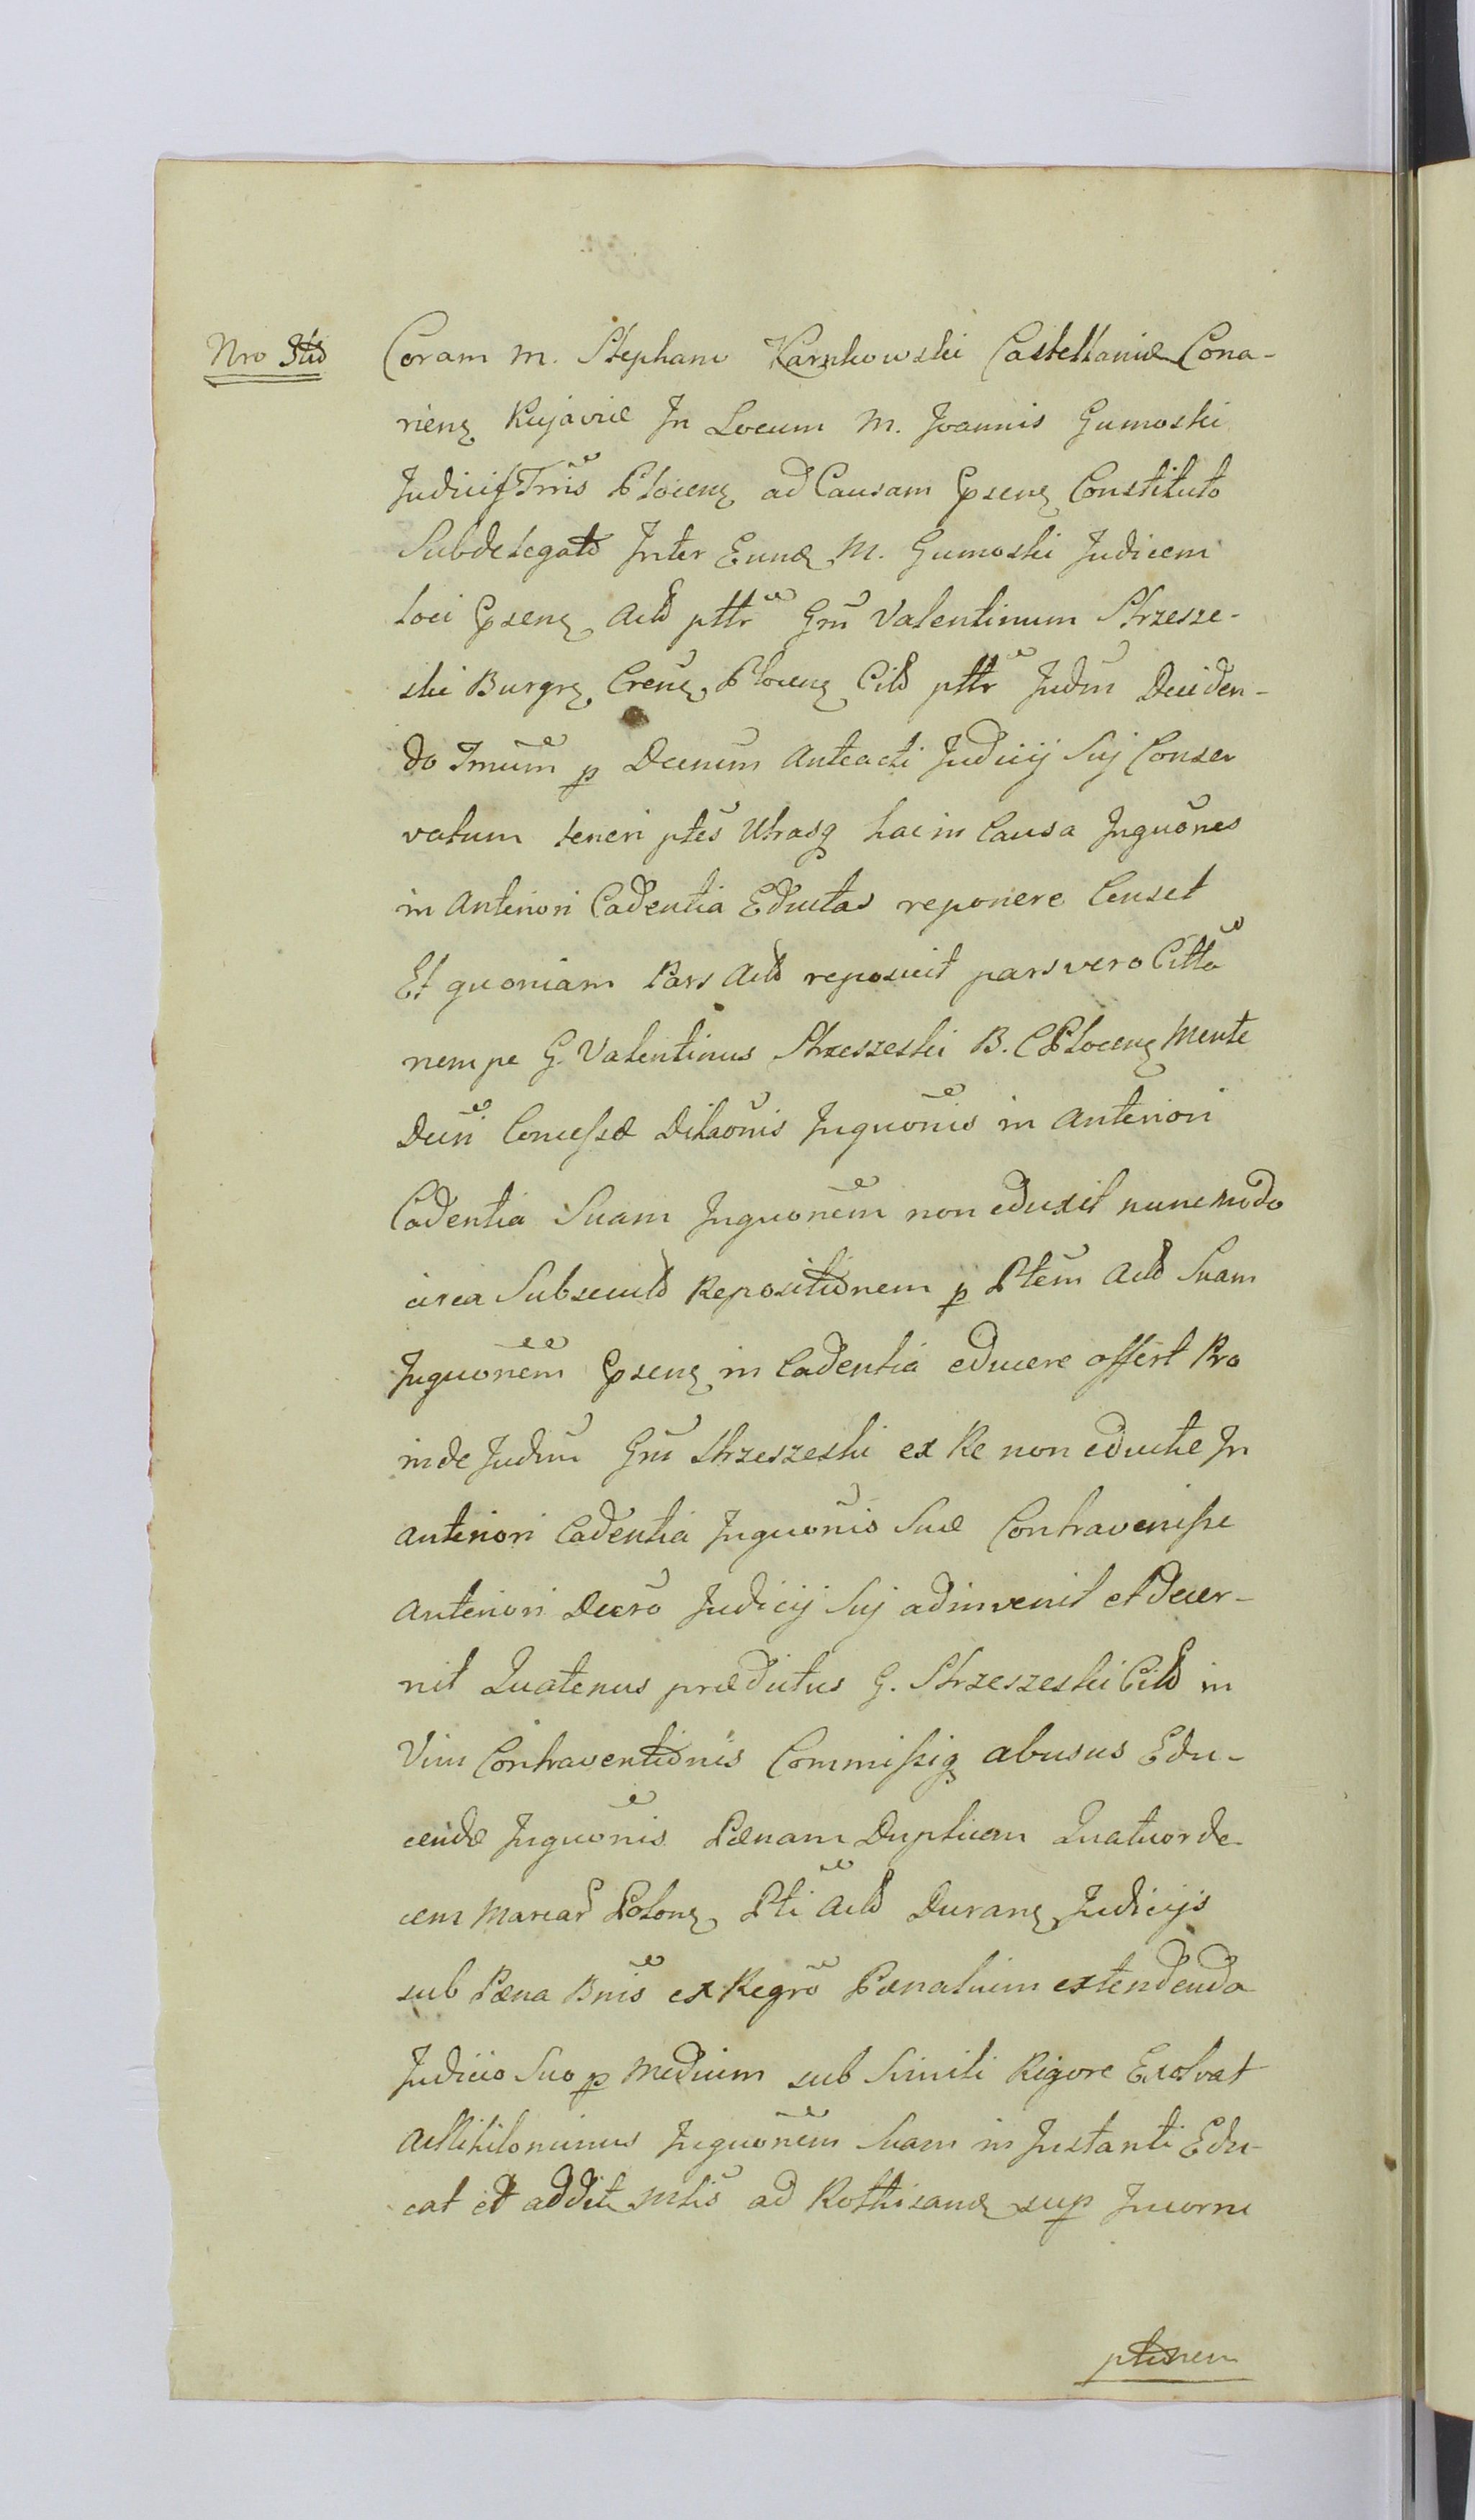 Nro 3tio
Coram M. Stephano Karnkowski Castellanidæ Cona-
rieng Kujaviæ In Locum M. Joannis Gumoski
Judicis Trris Ploceng ad Causam Pseng Constituto
Subdelegato Inter Eund M. Gumoski Judicem
loci Pseng Actd pttr Grn Valentinum Strzesze-
ski Burgrg Creng Ploceng Citd pttr Judm Deciden-
do Tmum p Decrum Anteacti Judicij Suj Conser
vatum teneri ptes Utrasq hac in Causa Inquones
in Anteriori Cadentia Eductas reponere Censet
Et quoniam Pars Actd reposuit pars vero Citta
nempe G. Valentinus Strzeszeski B. C Ploceng Mente
Decri Concessæ Dilaonis Inquonis in Anteriori
Cadentia Suam Inquonem non eduxit nunc modo
circa Subsecutd Repositionem p Ptem Actd Suam
Inquonem Pseng in Cadentia educere offert Pro
inde Judm Grn Strzeszeski ex Re non eductæ In
anteriori Cadentia Inquonis Suæ Contravenisse
Anteriori Decro Judicij Suj adinvenit et decer-
nit Quatenus prædictus G. Strzeszeski Citd in
Vim Contraventionis Commissiq abusus Edu-
cendæ Inquonis Pænam Duplicem Quatuorde
cem Marcar Polong Pti Actd Durang Judicijs
sub Pæna Bnis ex Regro Pænalium extendenda
Judicio Suo p Medium sub Simili Rigore Exolvat
ac Nihilominus Inquonem Suam in Instanti Edu-
cat et addit Mtis ad Rothisand sup Incorru
ptionem